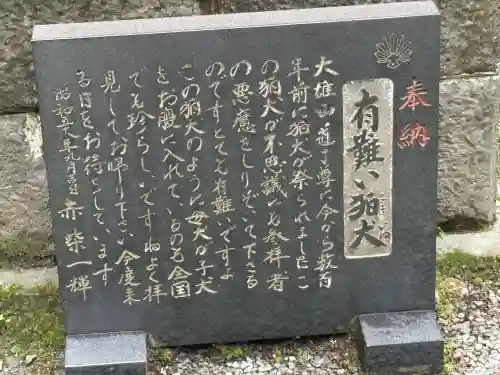 奉納
有難い狛犬
大雄山道了尊に今から数百
年前に狛犬が祭られましたこ
の狛犬が不思議にも参拝者
の悪魔をしりぞいて下さる
のですとても有難いですよ
この狛犬のように母犬が子犬
をお股に入れて、るのも全国
でも珍らしいですねよく拝
見してお帰り下さい今度来
る日をお待ちしています
昭和五十八年九月吉日 赤柴一輝